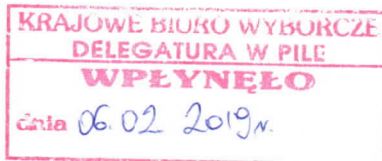 KRAJOWE BIURO WYBORCZE
DELEGATURA W PILE
WPŁYNĘŁO
dnia 06.02 2019r.